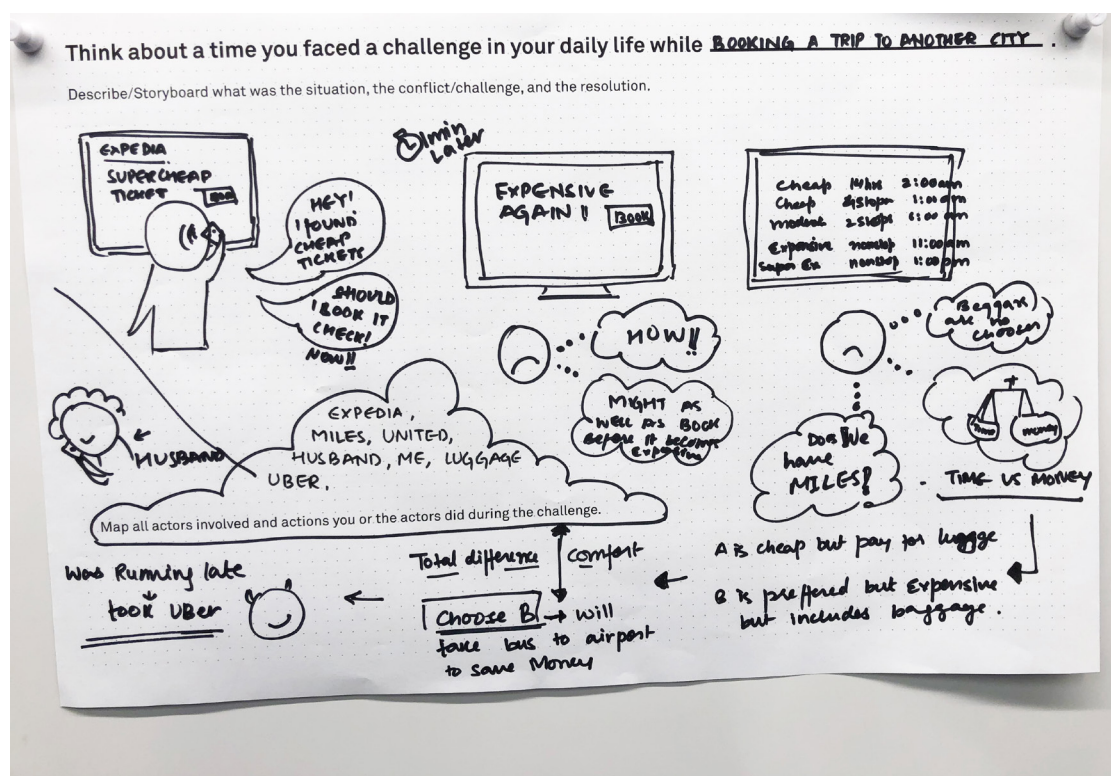 Think about a time you faced a challenge in your daily life while BOOKING A TRIP TO ANOTHER CITY.
Describe/Storyboard what was the situation, the conflict/challenge, and the resolution.
EXPEDIA
SUPERCHEAP
TICKET
HEY!
I FOUND
CHEAP
TICKETS
SHOULD
I BOOK IT
CHECK!
NOW!!
1 min
Later
EXPENSIVE
AGAIN!!
BOOK
HOW!!
MIGHT AS
WELL AS BOOK
Before it becomes
Expensive
Cheap 14hrs 2:00am
Cheap 4 stops 1:00am
modest 2 stops 6:00 pm
Expensive nonstop 11:00am
Super Ex nonstop 1:00pm
Beggars
are no
choosers
Does We
have
MILES?
TIME
MONEY
TIME VS MONEY
HUSBAND
EXPEDIA,
MILES, UNITED,
HUSBAND, ME, LUGGAGE
UBER,
Map all actors involved and actions you or the actors did during the challenge.
A is cheap but pay for luggge
B is preffered but Expensive
but includes baggage.
Total difference
comfort
Choose B → will
take bus to airport
to save Money
Was Running late
took UBer